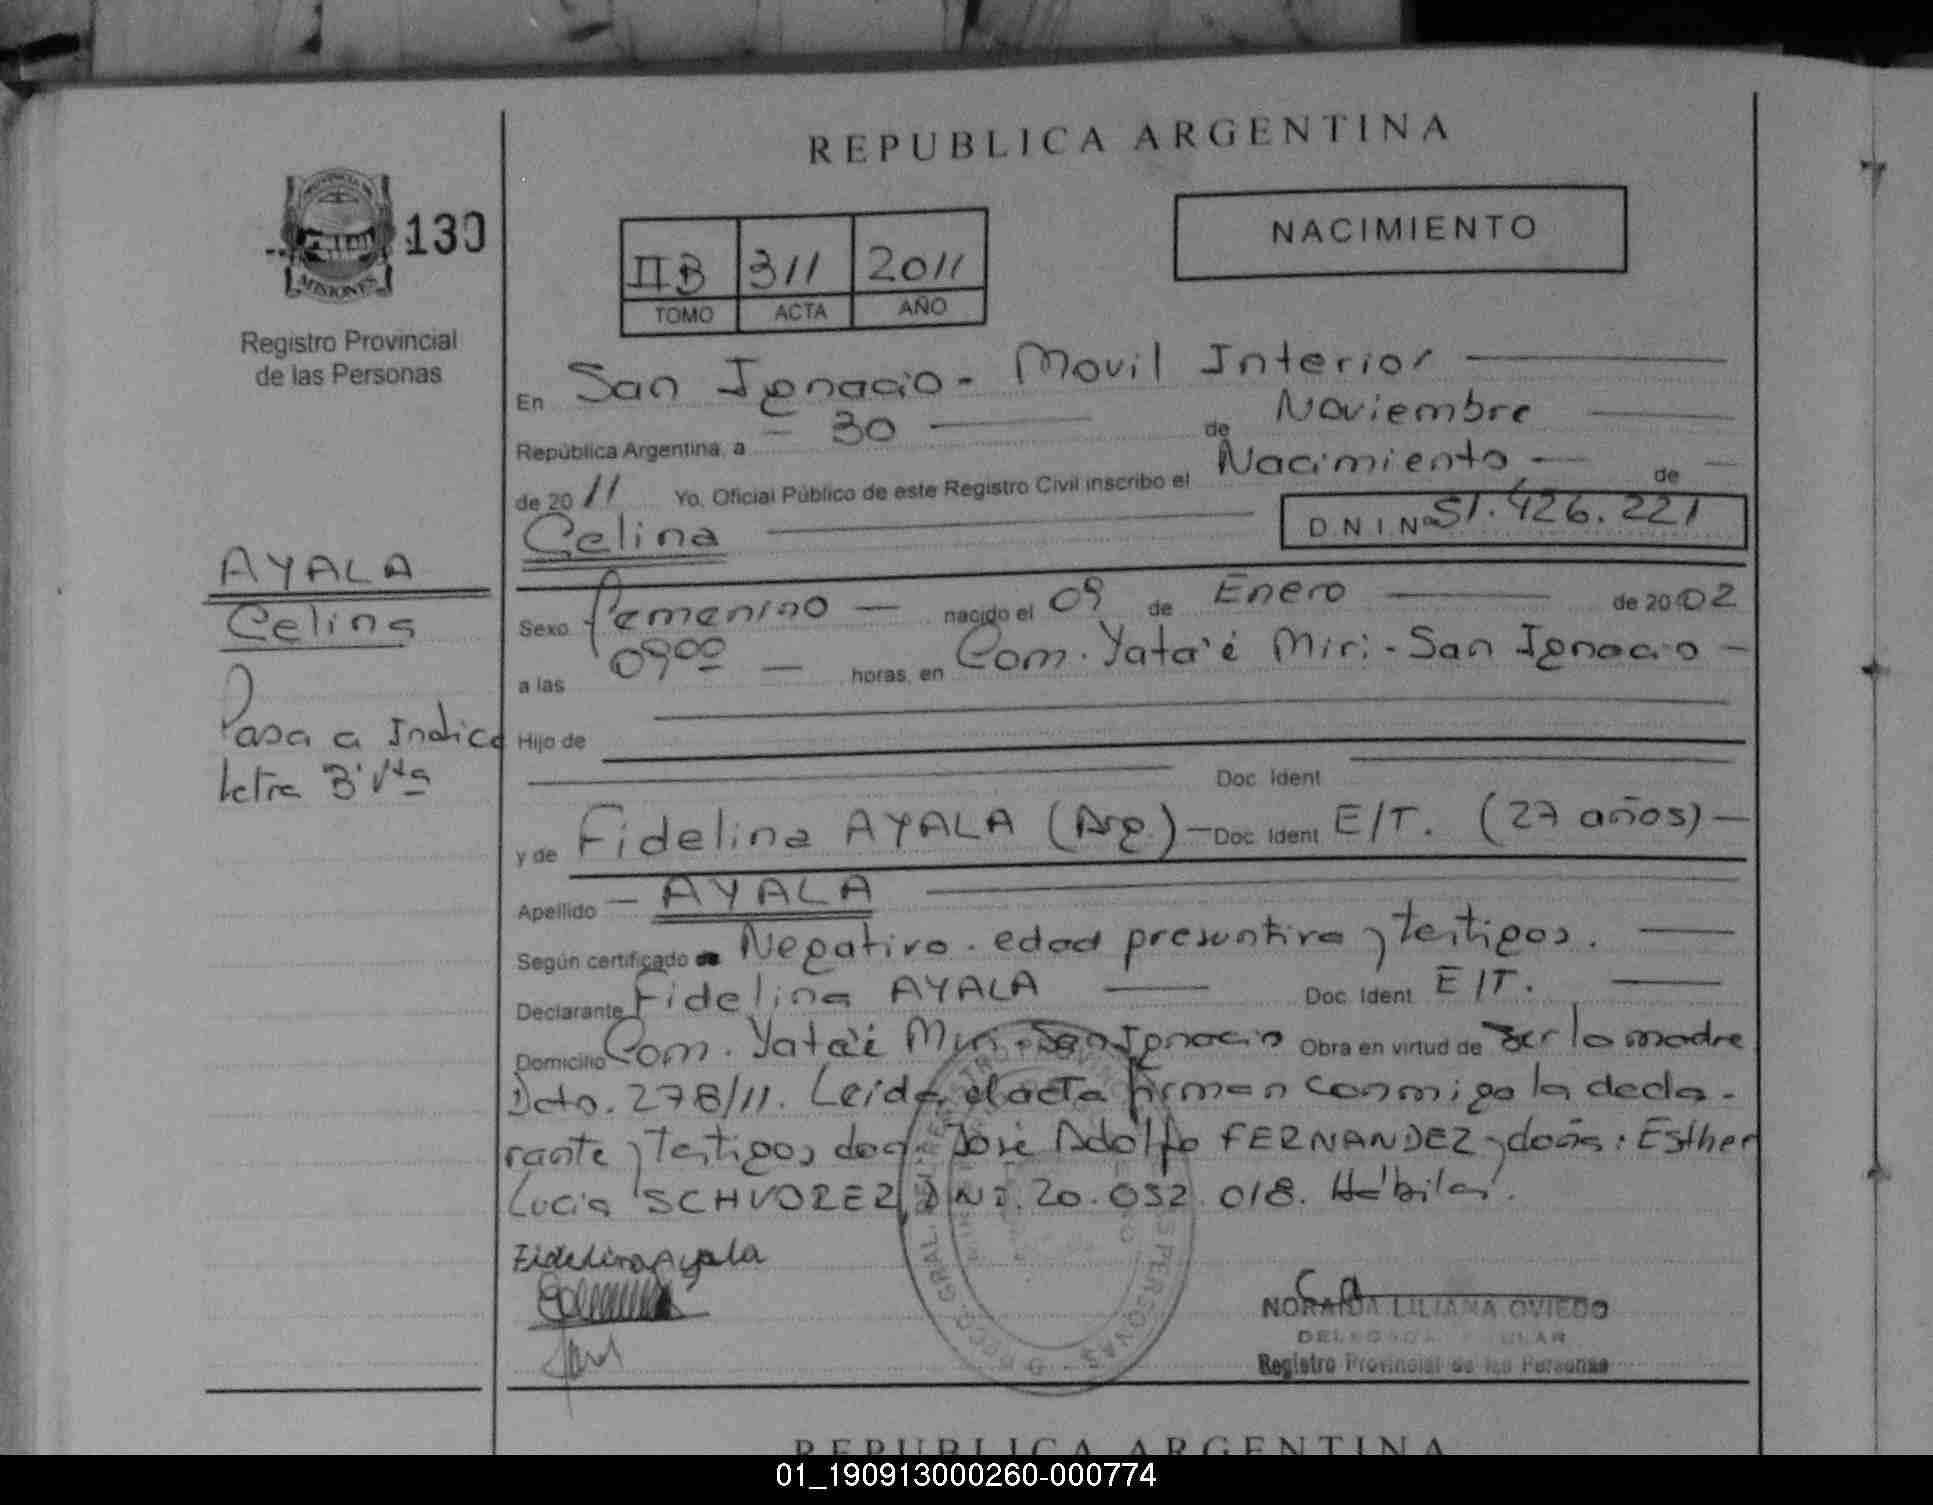 REPUBLICA ARGENTINA
PROVINCIA DE
MISIONES
130
Registro Provincial
de las Personas
IIB 311 2011
TOMO ACTA AÑO
NACIMIENTO
En San Ignacio - Movil Interior
República Argentina, a - 30 de Noviembre
de 2011 Yo, Oficial Público de este Registro Civil inscribo el Nacimiento de
Celina
D.N.I. Nº 51.426.221
AYALA
Celina
Pasa a Indice
letra B' Vta
Sexo femenino nacido el 09 de Enero de 2002
a las 09 00 horas, en Com. Yata'i Miri - San Ignacio
Hijo de
Doc. Ident
y de Fidelina AYALA (Arg.) Doc. Ident E/T. (27 años)
Apellido AYALA
Según certificado Negativo. edad presuntiva y testigos.
Declarante Fidelina AYALA Doc. Ident E/T.
Domicilio Com. Yata'i Miri - San Ignacio Obra en virtud de ser la madre
Dcto. 278/11. Leida el acta firman conmigo la decla-
rante y testigos don José Adolfo FERNANDEZ y doña: Esther
Lucia SCHVOREZ, DNI. 20.052.018. Hábiles.
Fidelina Ayala
NORAIDA LILIANA OVIEDO
Registro Provincial de las Personas
REPUBLICA ARGENTINA
01_190913000260-000774